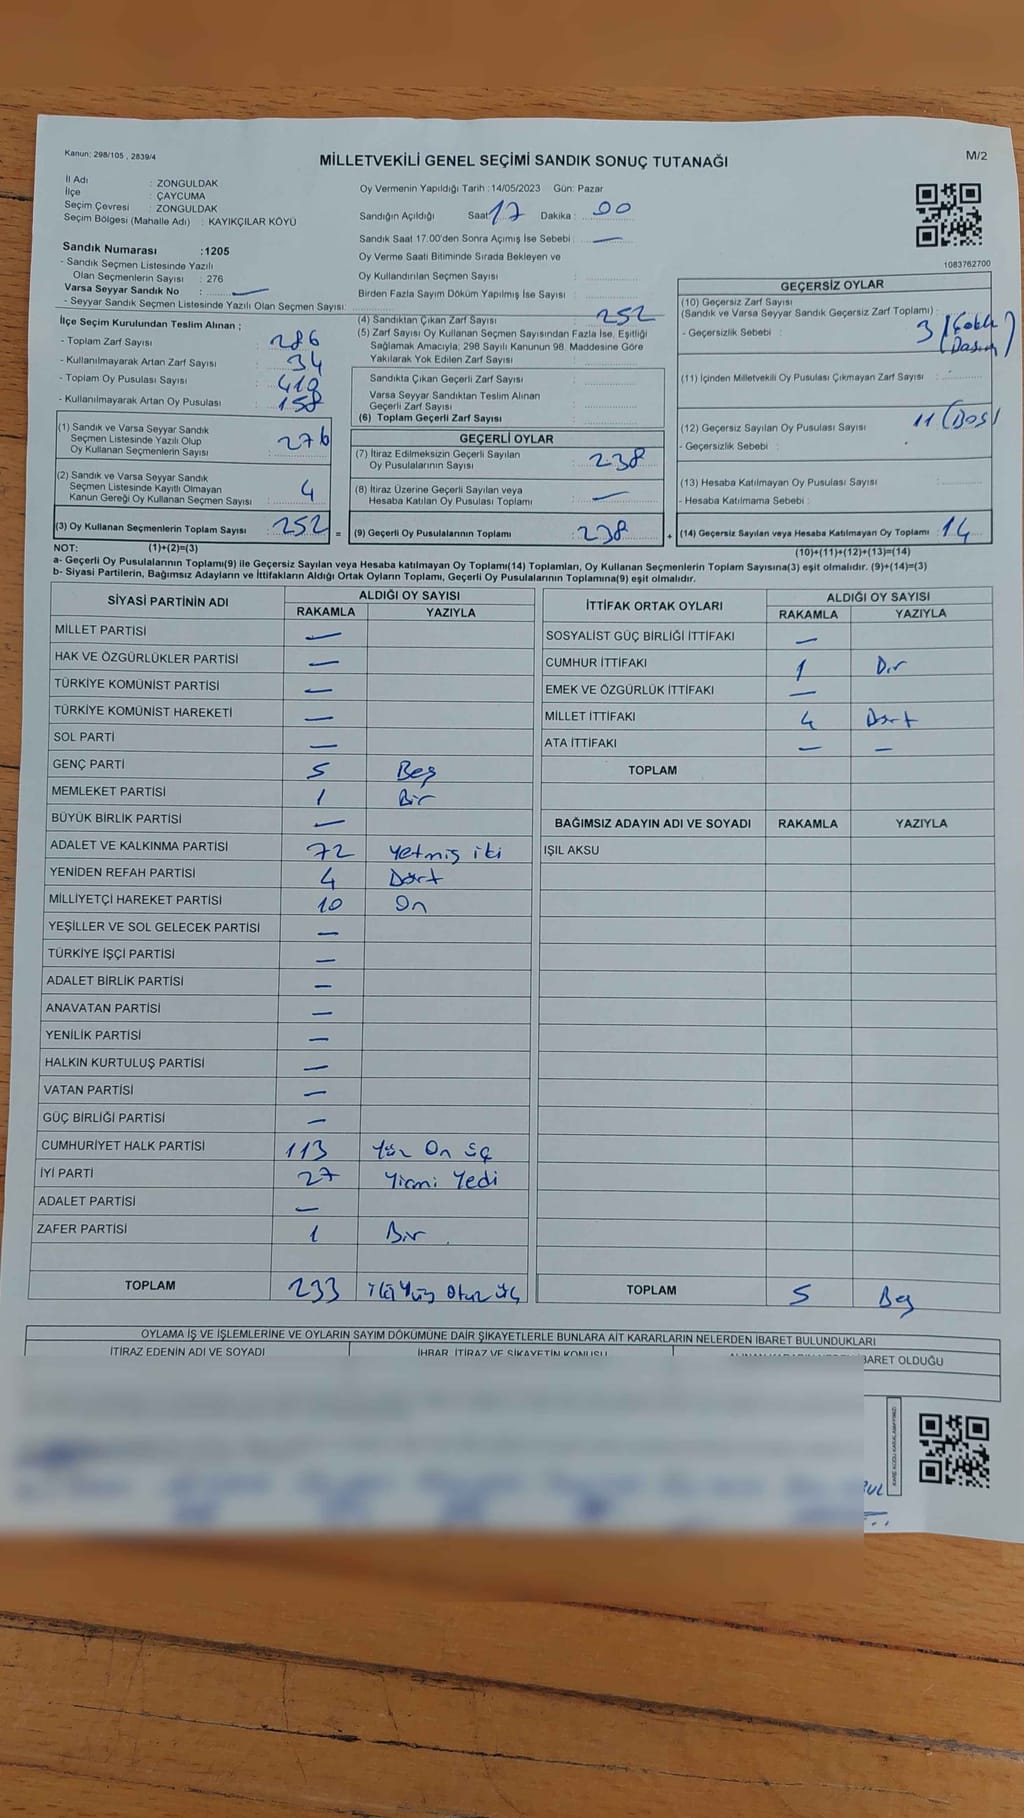 Kanun: 298/105 , 2839/4
MİLLETVEKİLİ GENEL SEÇİMİ SANDIK SONUÇ TUTANAĞI
M/2
İl Adı : ZONGULDAK
İlçe : ÇAYCUMA
Seçim Çevresi : ZONGULDAK
Seçim Bölgesi (Mahalle Adı) : KAYIKÇILAR KÖYÜ
Oy Vermenin Yapıldığı Tarih :14/05/2023 Gün: Pazar
Sandığın Açıldığı Saat 17 Dakika : 00
Sandık Saat 17:00'den Sonra Açımış İse Sebebi : —
Oy Verme Saati Bitiminde Sırada Bekleyen ve
Oy Kullandırılan Seçmen Sayısı :
Birden Fazla Sayım Döküm Yapılmış İse Sayısı :
1083762700
Sandık Numarası :1205
- Sandık Seçmen Listesinde Yazılı
Olan Seçmenlerin Sayısı : 276
Varsa Seyyar Sandık No : —
- Seyyar Sandık Seçmen Listesinde Yazılı Olan Seçmen Sayısı:
İlçe Seçim Kurulundan Teslim Alınan ;
- Toplam Zarf Sayısı : 286
- Kullanılmayarak Artan Zarf Sayısı : 34
- Toplam Oy Pusulası Sayısı : 410
- Kullanılmayarak Artan Oy Pusulası : 158
(1) Sandık ve Varsa Seyyar Sandık
Seçmen Listesinde Yazılı Olup
Oy Kullanan Seçmenlerin Sayısı : 276
(2) Sandık ve Varsa Seyyar Sandık
Seçmen Listesinde Kayıtlı Olmayan
Kanun Gereği Oy Kullanan Seçmen Sayısı : 4
(3) Oy Kullanan Seçmenlerin Toplam Sayısı : 252 =
(4) Sandıktan Çıkan Zarf Sayısı : 252
(5) Zarf Sayısı Oy Kullanan Seçmen Sayısından Fazla İse, Eşitliği
Sağlamak Amacıyla; 298 Sayılı Kanunun 98. Maddesine Göre
Yakılarak Yok Edilen Zarf Sayısı :
Sandıkta Çıkan Geçerli Zarf Sayısı :
Varsa Seyyar Sandıktan Teslim Alınan
Geçerli Zarf Sayısı :
(6) Toplam Geçerli Zarf Sayısı :
GEÇERLİ OYLAR
(7) İtiraz Edilmeksizin Geçerli Sayılan
Oy Pusulalarının Sayısı : 238
(8) İtiraz Üzerine Geçerli Sayılan veya
Hesaba Katılan Oy Pusulası Toplamı : —
(9) Geçerli Oy Pusulalarının Toplamı : 238 +
GEÇERSİZ OYLAR
(10) Geçersiz Zarf Sayısı
(Sandık ve Varsa Seyyar Sandık Geçersiz Zarf Toplamı) : 3
- Geçersizlik Sebebi :
(11) İçinden Milletvekili Oy Pusulası Çıkmayan Zarf Sayısı :
(12) Geçersiz Sayılan Oy Pusulası Sayısı : 11 (Boş)
- Geçersizlik Sebebi :
(13) Hesaba Katılmayan Oy Pusulası Sayısı :
- Hesaba Katılmama Sebebi :
(14) Geçersiz Sayılan veya Hesaba Katılmayan Oy Toplamı : 14
NOT: (1)+(2)=(3)
(10)+(11)+(12)+(13)=(14)
a- Geçerli Oy Pusulalarının Toplamı(9) ile Geçersiz Sayılan veya Hesaba katılmayan Oy Toplamı(14) Toplamları, Oy Kullanan Seçmenlerin Toplam Sayısına(3) eşit olmalıdır. (9)+(14)=(3)
b- Siyasi Partilerin, Bağımsız Adayların ve İttifakların Aldığı Ortak Oyların Toplamı, Geçerli Oy Pusulalarının Toplamına(9) eşit olmalıdır.
SİYASİ PARTİNİN ADI ALDIĞI OY SAYISI
RAKAMLA YAZIYLA
MİLLET PARTİSİ —
HAK VE ÖZGÜRLÜKLER PARTİSİ —
TÜRKİYE KOMÜNİST PARTİSİ —
TÜRKİYE KOMÜNİST HAREKETİ —
SOL PARTİ —
GENÇ PARTİ 5 Beş
MEMLEKET PARTİSİ 1 Bir
BÜYÜK BİRLİK PARTİSİ —
ADALET VE KALKINMA PARTİSİ 72 Yetmiş iki
YENİDEN REFAH PARTİSİ 4 Dört
MİLLİYETÇİ HAREKET PARTİSİ 10 On
YEŞİLLER VE SOL GELECEK PARTİSİ —
TÜRKİYE İŞÇİ PARTİSİ —
ADALET BİRLİK PARTİSİ —
ANAVATAN PARTİSİ —
YENİLİK PARTİSİ —
HALKIN KURTULUŞ PARTİSİ —
VATAN PARTİSİ —
GÜÇ BİRLİĞİ PARTİSİ —
CUMHURİYET HALK PARTİSİ 113 Yüz On üç
İYİ PARTİ 27 Yirmi Yedi
ADALET PARTİSİ —
ZAFER PARTİSİ 1 Bir
TOPLAM 233 İki Yüz Otuz üç
İTTİFAK ORTAK OYLARI ALDIĞI OY SAYISI
RAKAMLA YAZIYLA
SOSYALİST GÜÇ BİRLİĞİ İTTİFAKI —
CUMHUR İTTİFAKI 1 Bir
EMEK VE ÖZGÜRLÜK İTTİFAKI —
MİLLET İTTİFAKI 4 Dört
ATA İTTİFAKI — —
TOPLAM
BAĞIMSIZ ADAYIN ADI VE SOYADI RAKAMLA YAZIYLA
IŞIL AKSU
TOPLAM 5 Beş
OYLAMA İŞ VE İŞLEMLERİNE VE OYLARIN SAYIM DÖKÜMÜNE DAİR ŞİKAYETLERLE BUNLARA AİT KARARLARIN NELERDEN İBARET BULUNDUKLARI
İTİRAZ EDENİN ADI VE SOYADI İHBAR, İTİRAZ VE ŞİKAYETİN KONUSU İBARET OLDUĞU